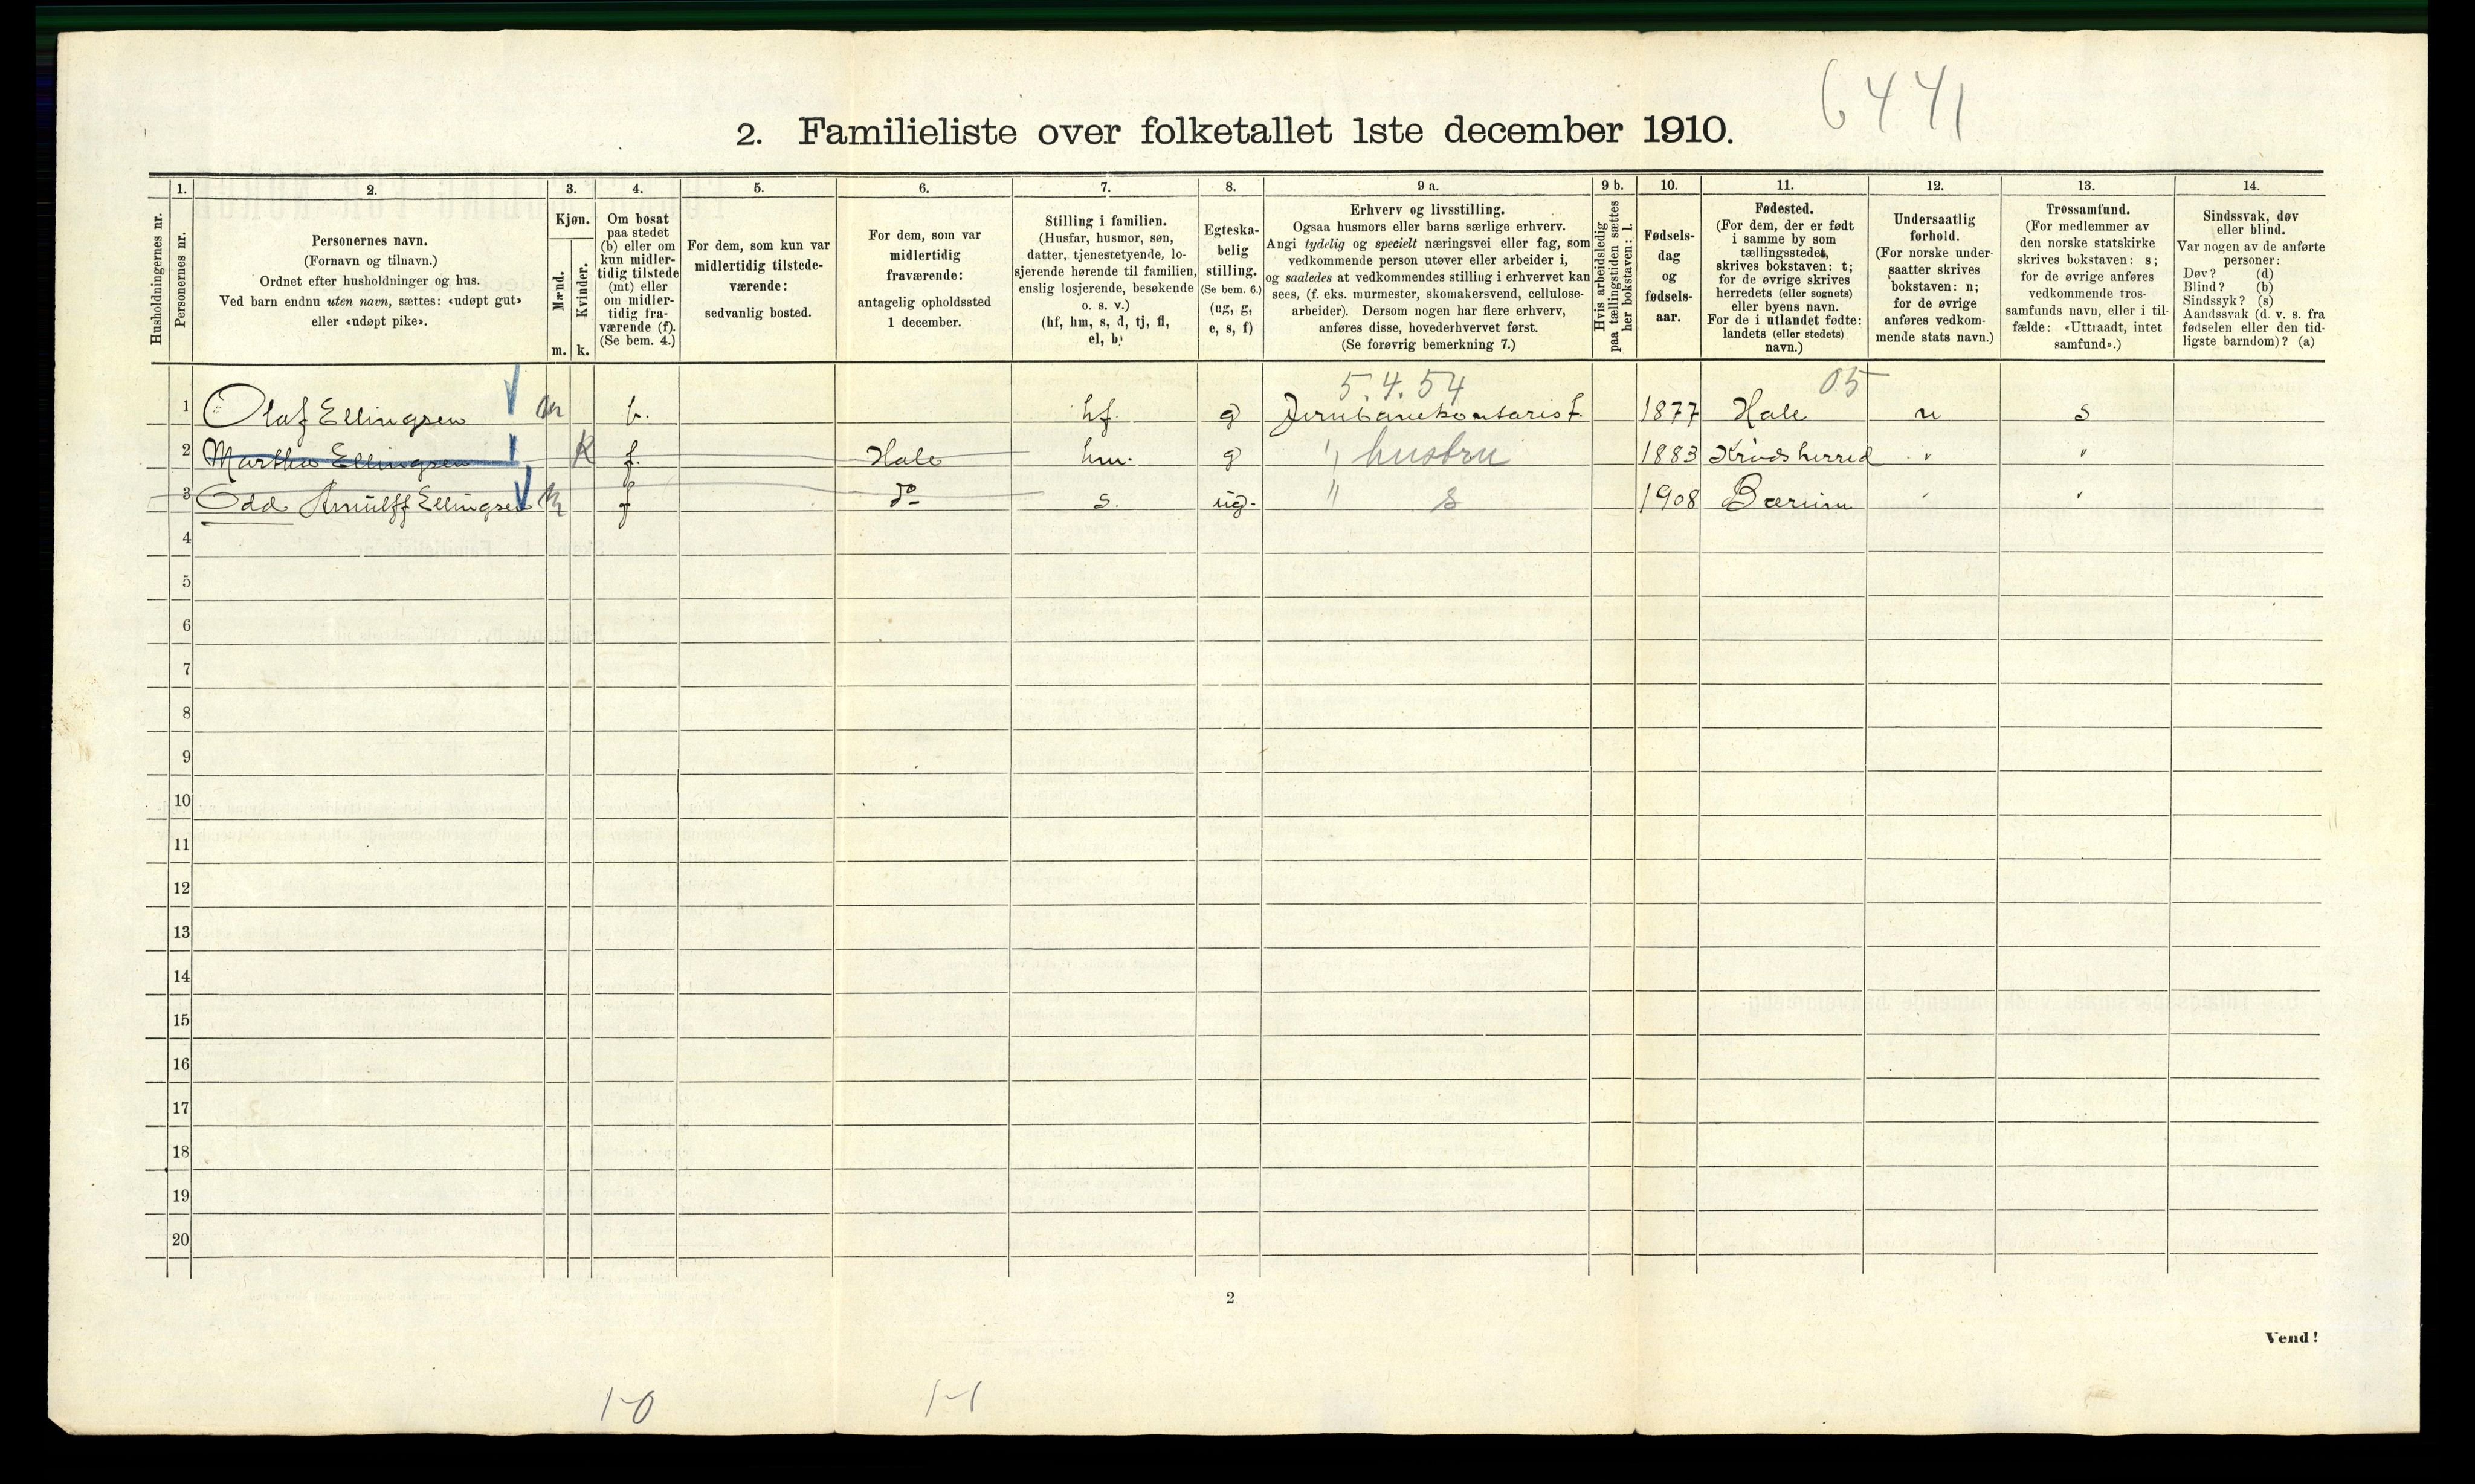 6441
2. Familieliste over folketallet 1ste december 1910.
Husholdningernes nr.
1.
Personernes nr.
2.
Personernes navn.
(Fornavn og tilnavn.)
Ordnet efter husholdninger og hus.
Ved barn endnu uten navn, sættes: «udøpt gut»
eller «udøpt pike».
3.
Kjøn.
Mænd.
Kvinder.
m. k.
4.
Om bosat
paa stedet
(b) eller om
kun midler-
tidig tilstede
(mt) eller
om midler-
tidig fra-
værende (f).
(Se bem. 4.)
5.
For dem, som kun var
midlertidig tilstede-
værende:
sedvanlig bosted.
6.
For dem, som var
midlertidig
fraværende:
antagelig opholdssted
1 december.
7.
Stilling i familien.
(Husfar, husmor, søn,
datter, tjenestetyende, lo-
sjerende hørende til familien,
enslig losjerende, besøkende
o. s. v.)
(hf, hm, s, d, tj, fl,
el, b)
8.
Egteska-
belig
stilling.
(Se bem. 6.)
(ug, g,
e, s, f)
9 a.
Erhverv og livsstilling.
Ogsaa husmors eller barns særlige erhverv.
Angi tydelig og specielt næringsvei eller fag, som
vedkommende person utøver eller arbeider i,
og saaledes at vedkommendes stilling i erhvervet kan
sees, (f. eks. murmester, skomakersvend, cellulose-
arbeider). Dersom nogen har flere erhverv,
anføres disse, hovederhvervet først.
(Se forøvrig bemerkning 7.)
9 b.
Hvis arbeidsledig
paa tællingstiden sættes
her bokstaven: l.
10.
Fødsels-
dag
og
fødsels-
aar.
11.
Fødested.
(For dem, der er født
i samme by som
tællingsstedet,
skrives bokstaven: t;
for de øvrige skrives
herredets (eller sognets)
eller byens navn.
For de i utlandet fødte:
landets (eller stedets)
navn.)
12.
Undersaatlig
forhold.
(For norske under-
saatter skrives
bokstaven: n;
for de øvrige
anføres vedkom-
mende stats navn.)
13.
Trossamfund.
(For medlemmer av
den norske statskirke
skrives bokstaven: s;
for de øvrige anføres
vedkommende tros-
samfunds navn, eller i til-
fælde: «Uttraadt, intet
samfund».)
14.
Sindssvak, døv
eller blind.
Var nogen av de anførte
personer:
Døv? (d)
Blind? (b)
Sindssyk? (s)
Aandssvak (d. v. s. fra
fødselen eller den tid-
ligste barndom)? (a)
5.4.54 05
1 Olaf Ellingsen m b. hf. g Jernbanekontorist. 1877 Hole n s
2 Martha Ellingsen k f. Hole hm. g " hustru 1883 Krødsherred " "
3 Odd Arnulff Ellingsen m f do s. ug. " s 1908 Bærum " "
4
5
6
7
8
9
10
11
12
13
14
15
16
17
18
19
20
2
Vend!
1-0 1-1